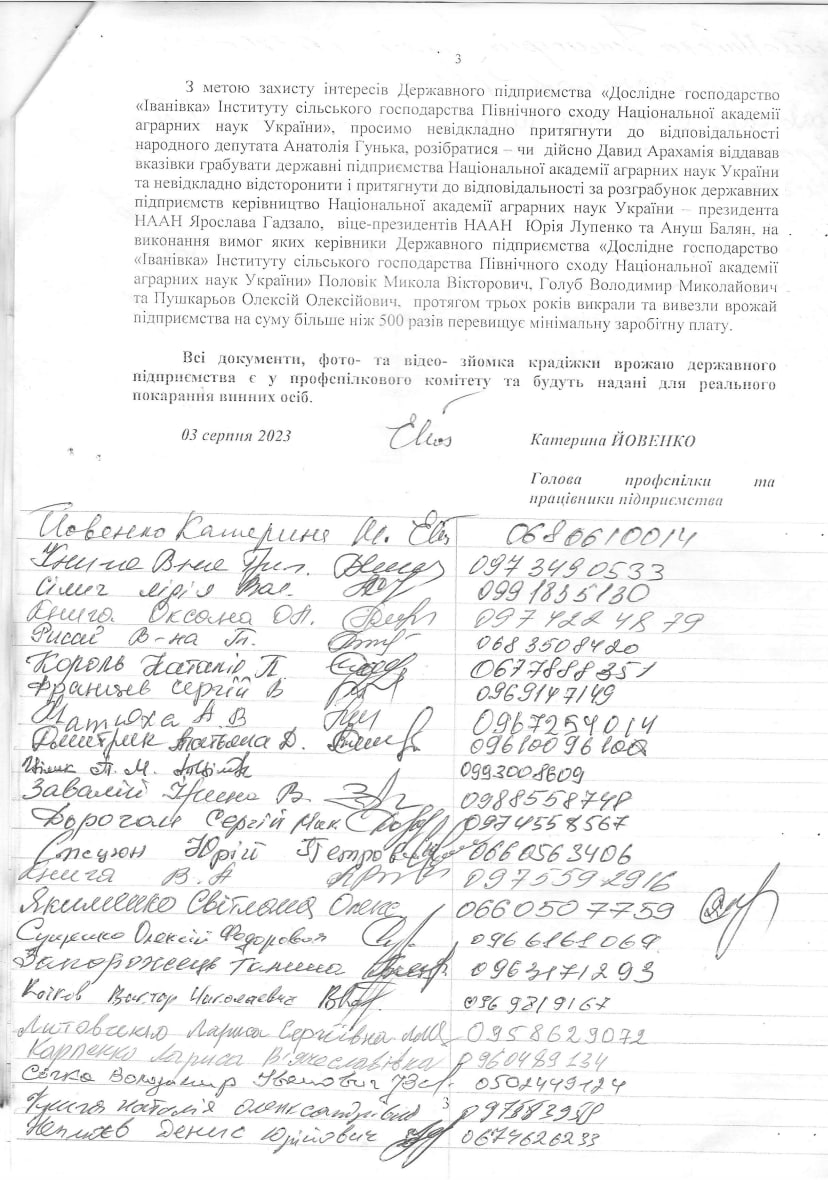 3
З метою захисту інтересів Державного підприємства «Дослідне господарство
«Іванівка» Інституту сільського господарства Північного сходу Національної академії
аграрних наук України», просимо невідкладно притягнути до відповідальності
народного депутата Анатолія Гунька, розібратися – чи дійсно Давид Арахамія віддавав
вказівки грабувати державні підприємства Національної академії аграрних наук України
та невідкладно відсторонити і притягнути до відповідальності за розграбунок державних
підприємств керівництво Національної академії аграрних наук України – президента
НААН Ярослава Гадзало, віце-президентів НААН Юрія Лупенко та Ануш Балян, на
виконання вимог яких керівники Державного підприємства «Дослідне господарство
«Іванівка» Інституту сільського господарства Північного сходу Національної академії
аграрних наук України» Половік Микола Вікторович, Голуб Володимир Миколайович
та Пушкарьов Олексій Олексійович, протягом трьох років викрали та вивезли врожай
підприємства на суму більше ніж 500 разів перевищує мінімальну заробітну плату.
Всі документи, фото- та відео- зйомка крадіжки врожаю державного
підприємства є у профспілкового комітету та будуть надані для реального
покарання винних осіб.
03 серпня 2023 Катерина ЙОВЕНКО
Голова профспілки та
працівники підприємства
Йовенко Катерина М. 0680610014
Книга 0973490533
Сілич Лірія Вас. 0991835130
Книга Оксана О.П. 0974224879
Рисай В-на Т. 0683508420
Король Наталія П 0677888351
Францев Сергій В 0969147149
Матюха А.В 0967254014
Дмитрик Татьяна Д. 0961009610
П.М. 0993008609
Завалій Ірина В. 0988558748
Дорогам Сергій Мик. 0974558567
Юрій Петрович 0660563406
Книга В.А 0975592916
Якименко Світлана Олекс 0660507759
Сущенко Олексій Федорович 0966161069
Запорожець Галина 0963171293
Коіков Виктор Николаевич 0969819167
Литовченко Лариса Сергіївна 0958629072
Карпенко Лариса Вячеславівка 0960489134
Сочка Володимир Іванович 0502449124
Книга Наталія Олександрівна
3
Непляєв Денис Юрійович 0674626233